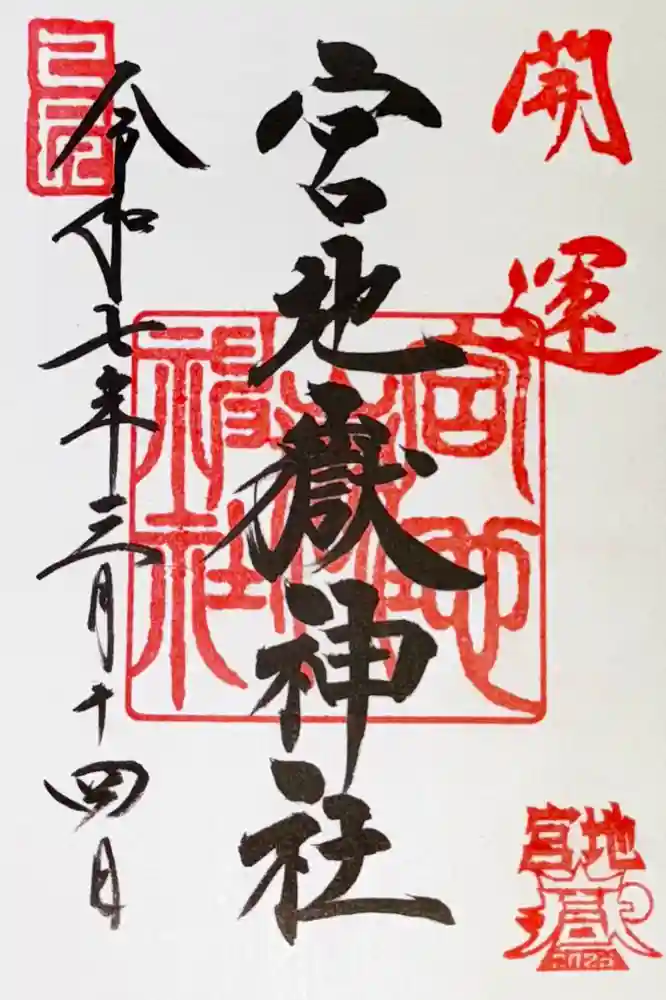 開運
宮地嶽神社
宮地嶽神社
令和七年三月十四日
宮地
嶽
2025